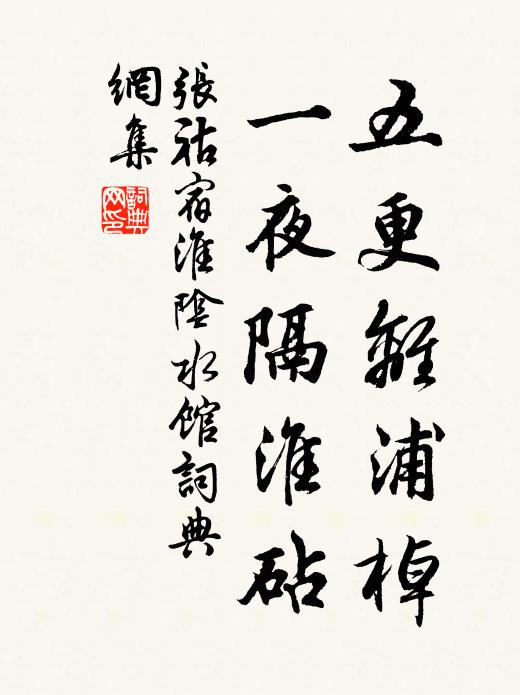 五更離浦棹
一夜隔淮砧
張祜宿淮陰水館詞典
網集
詞典
网印